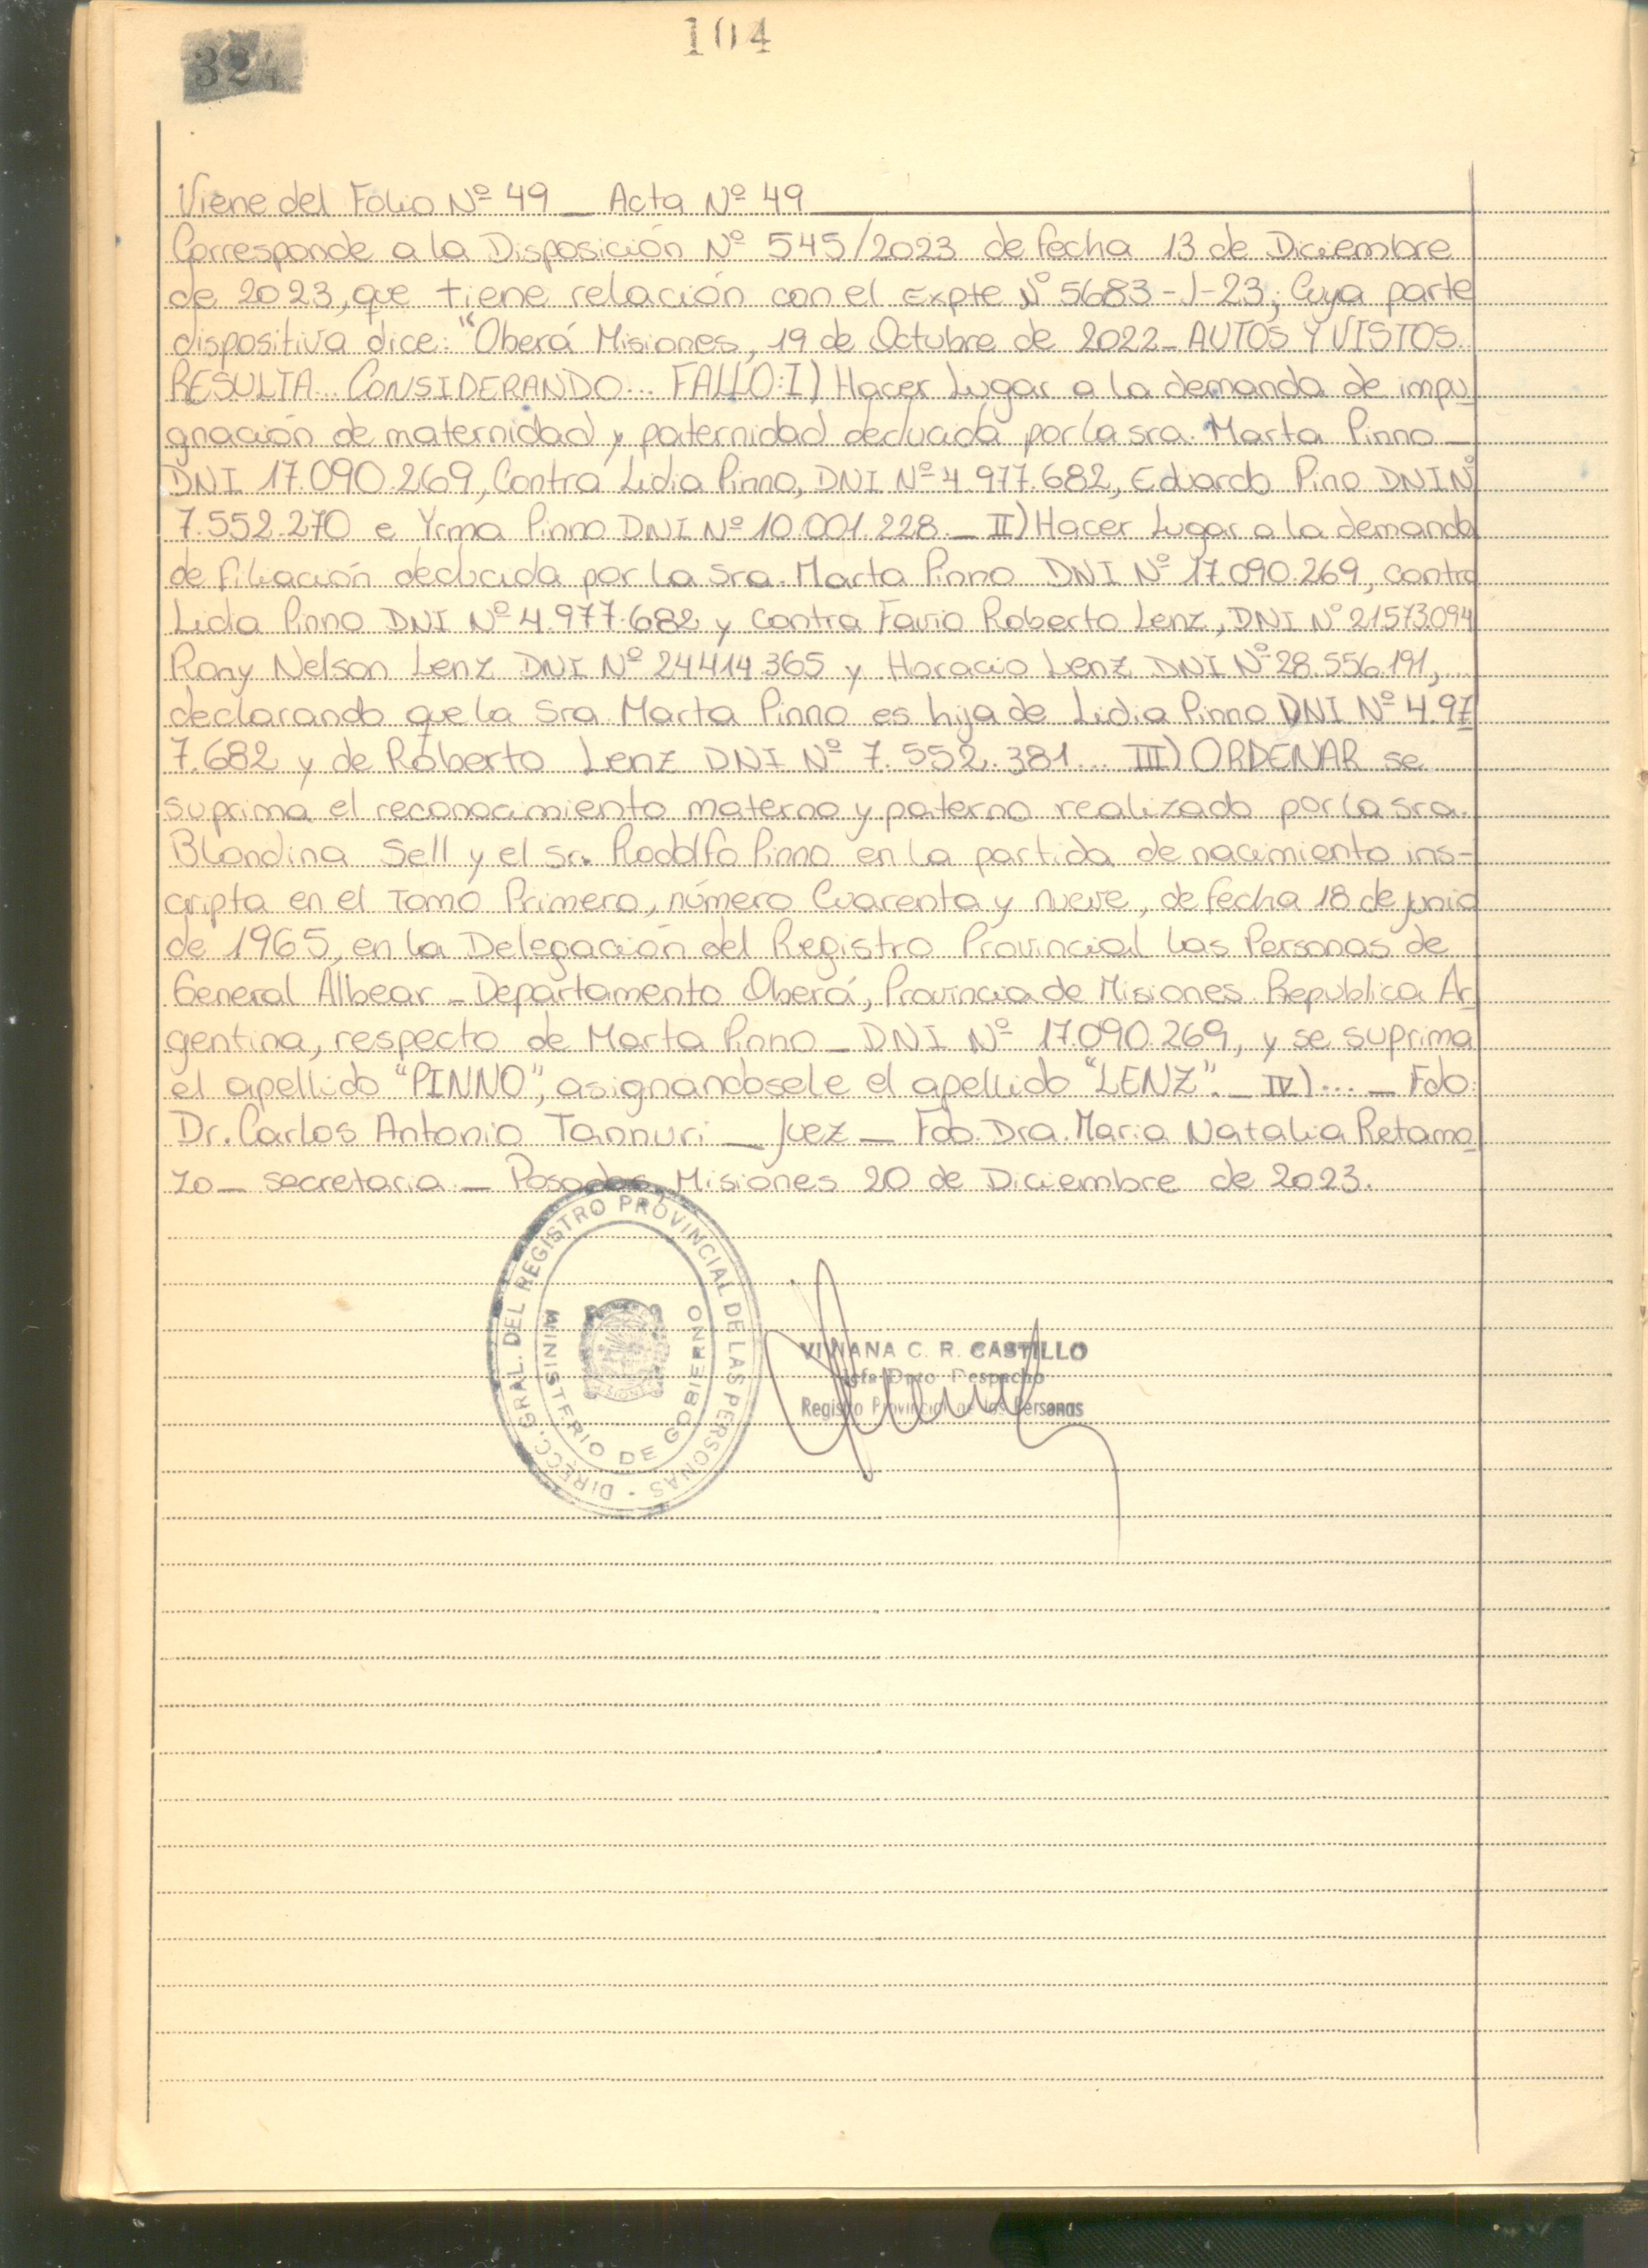 104
324
Viene del Folio Nº 49 _ Acta Nº 49
Corresponde a la Disposición Nº 545/2023 de fecha 13 de Diciembre
de 2023, que tiene relación con el Expte Nº 5683-J-23; Cuya parte
dispositiva dice: "Oberá Misiones, 19 de Octubre de 2022_ AUTOS Y VISTOS..
RESULTA... CONSIDERANDO... FALLO: I) Hacer Lugar a la demanda de impu_
gnación de maternidad y paternidad deducida por la sra. Marta Pinno _
DNI 17.090.269, Contra Lidia Pinno, DNI Nº 4.977.682, Eduardo Pino DNI Nº
7.552.270 e Yrma Pinno DNI Nº 10.001.228._ II) Hacer Lugar a la demanda
de filiación deducida por la Sra. Marta Pinno DNI Nº 17.090.269, contra
Lidia Pinno DNI Nº 4.977.682 y contra Favio Roberto Lenz, DNI Nº 21573.094
Rony Nelson Lenz DNI Nº 24414.365 y Horacio Lenz DNI Nº 28.556.191,...
declarando que la Sra. Marta Pinno es hija de Lidia Pinno DNI Nº 4.97
7.682 y de Roberto Lenz DNI Nº 7.552.381... III) ORDENAR se
suprima el reconocimiento materno y paterno realizado por la sra.
Blondina Sell y el Sr. Rodolfo Pinno en la partida de nacimiento ins-
cripta en el Tomo Primero, número Cuarenta y nueve, de fecha 18 de junio
de 1965, en la Delegación del Registro Provincial las Personas de
General Albear _ Departamento Oberá, Provincia de Misiones Republica Ar_
gentina, respecto de Marta Pinno _ DNI Nº 17.090.269, y se suprima
el apellido "PINNO", asignandosele el apellido "LENZ"._ IV)... _ Fdo:
Dr. Carlos Antonio Tannuri _ Juez _ Fdo. Dra. Maria Natalia Retamo_
zo _ secretaria _ Posadas, Misiones 20 de Diciembre de 2023.
DIRECC. GRAL. DEL REGISTRO PROVINCIAL DE LAS PERSONAS
MINISTERIO DE GOBIERNO
VIVIANA C. R. CASTILLO
Jefe Dpto Despacho
Registro Provincial de las Personas